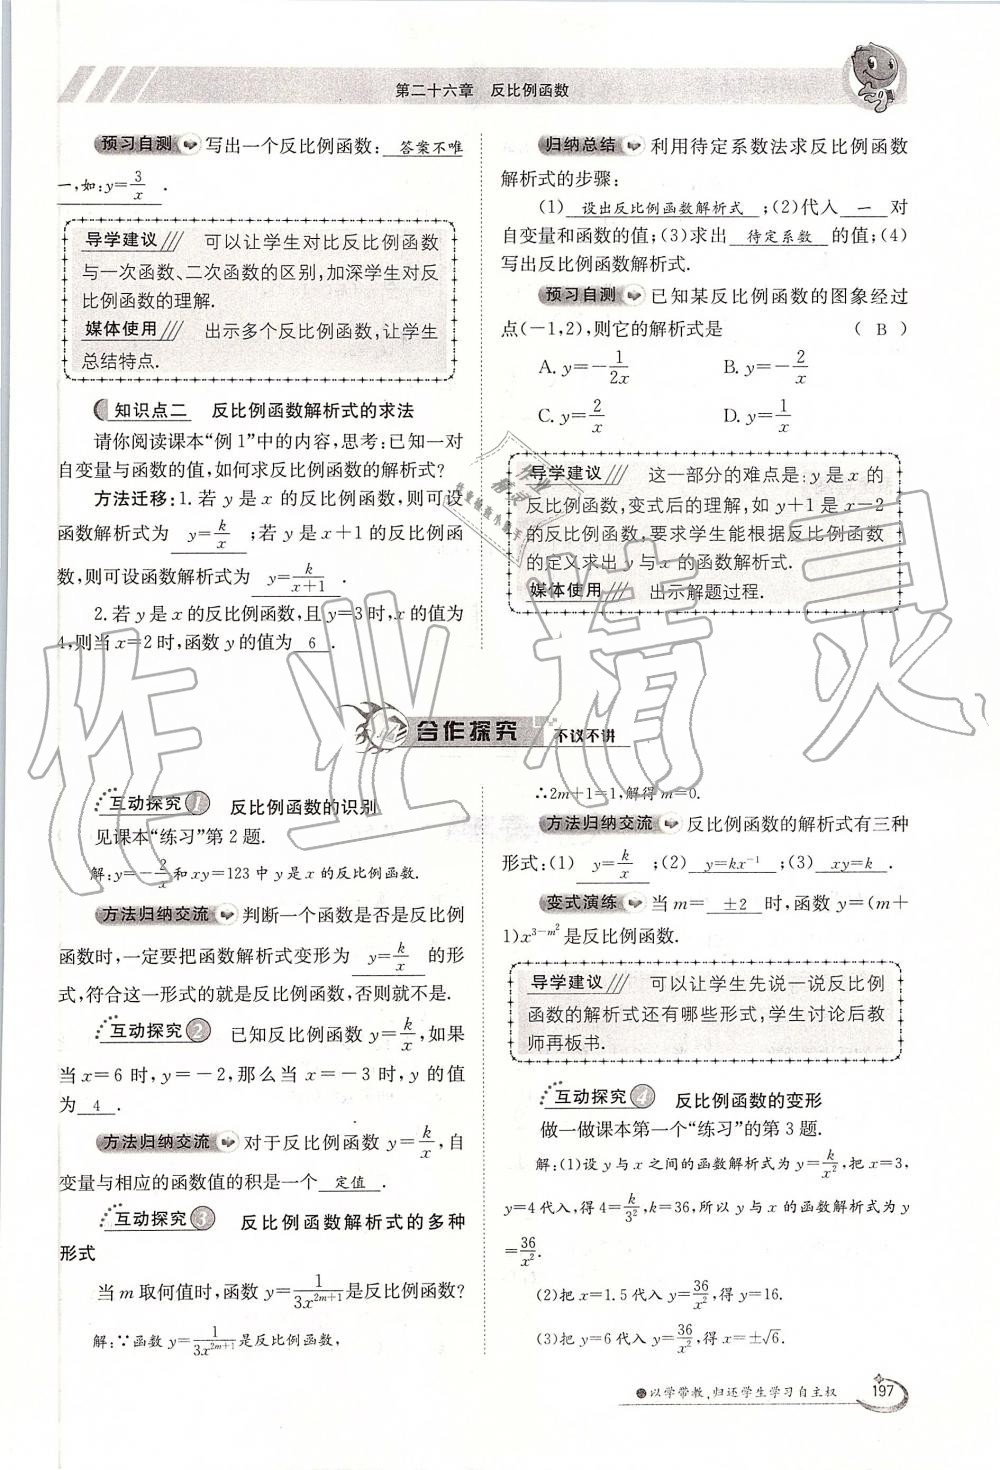 第二十六章 反比例函数
预习自测 写出一个反比例函数: 答案不唯
一,如:y=3/x .
导学建议/// 可以让学生对比反比例函数
与一次函数、二次函数的区别,加深学生对反
比例函数的理解.
媒体使用/// 出示多个反比例函数,让学生
总结特点.
知识点二 反比例函数解析式的求法
请你阅读课本“例1”中的内容,思考:已知一对
自变量与函数的值,如何求反比例函数的解析式?
方法迁移:1.若 y 是 x 的反比例函数,则可设
函数解析式为 y=k/x ;若 y 是 x+1 的反比例函
数,则可设函数解析式为 y=k/(x+1) .
2.若 y 是 x 的反比例函数,且 y=3 时,x 的值为
4,则当 x=2 时,函数 y 的值为 6 .
归纳总结 利用待定系数法求反比例函数
解析式的步骤:
(1) 设出反比例函数解析式 ;(2)代入 一 对
自变量和函数的值;(3)求出 待定系数 的值;(4)
写出反比例函数解析式.
预习自测 已知某反比例函数的图象经过
点(-1,2),则它的解析式是 ( B )
A. y=-1/(2x) B. y=-2/x
C. y=2/x D. y=1/x
导学建议/// 这一部分的难点是:y 是 x 的
反比例函数,变式后的理解,如 y+1 是 x-2
的反比例函数,要求学生能根据反比例函数
的定义求出 y 与 x 的函数解析式.
媒体使用/// 出示解题过程.
合作探究 不议不讲
互动探究1 反比例函数的识别
见课本“练习”第 2 题.
解:y=-2/x 和 xy=123 中 y 是 x 的反比例函数.
方法归纳交流 判断一个函数是否是反比例
函数时,一定要把函数解析式变形为 y=k/x 的形
式,符合这一形式的就是反比例函数,否则就不是.
互动探究2 已知反比例函数 y=k/x,如果
当 x=6 时,y=-2,那么当 x=-3 时,y 的值
为 4 .
方法归纳交流 对于反比例函数 y=k/x,自
变量与相应的函数值的积是一个 定值 .
互动探究3 反比例函数解析式的多种
形式
当 m 取何值时,函数 y=1/(3x^(2m+1))是反比例函数?
解:∵函数 y=1/(3x^(2m+1))是反比例函数,
∴2m+1=1,解得 m=0.
方法归纳交流 反比例函数的解析式有三种
形式:(1) y=k/x ;(2) y=kx⁻¹ ;(3) xy=k .
变式演练 当 m= ±2 时,函数 y=(m+
1)x^(3-m²)是反比例函数.
导学建议/// 可以让学生先说一说反比例
函数的解析式还有哪些形式,学生讨论后教
师再板书.
互动探究4 反比例函数的变形
做一做课本第一个“练习”的第 3 题.
解:(1)设 y 与 x 之间的函数解析式为 y=k/x²,把 x=3,
y=4代入,得 4=k/3²,k=36,所以 y 与 x 的函数解析式为 y
=36/x².
(2)把 x=1.5代入 y=36/x²,得 y=16.
(3)把 y=6代入 y=36/x²,得 x=±√6.
以学带教,归还学生学习自主权
197
作业精灵